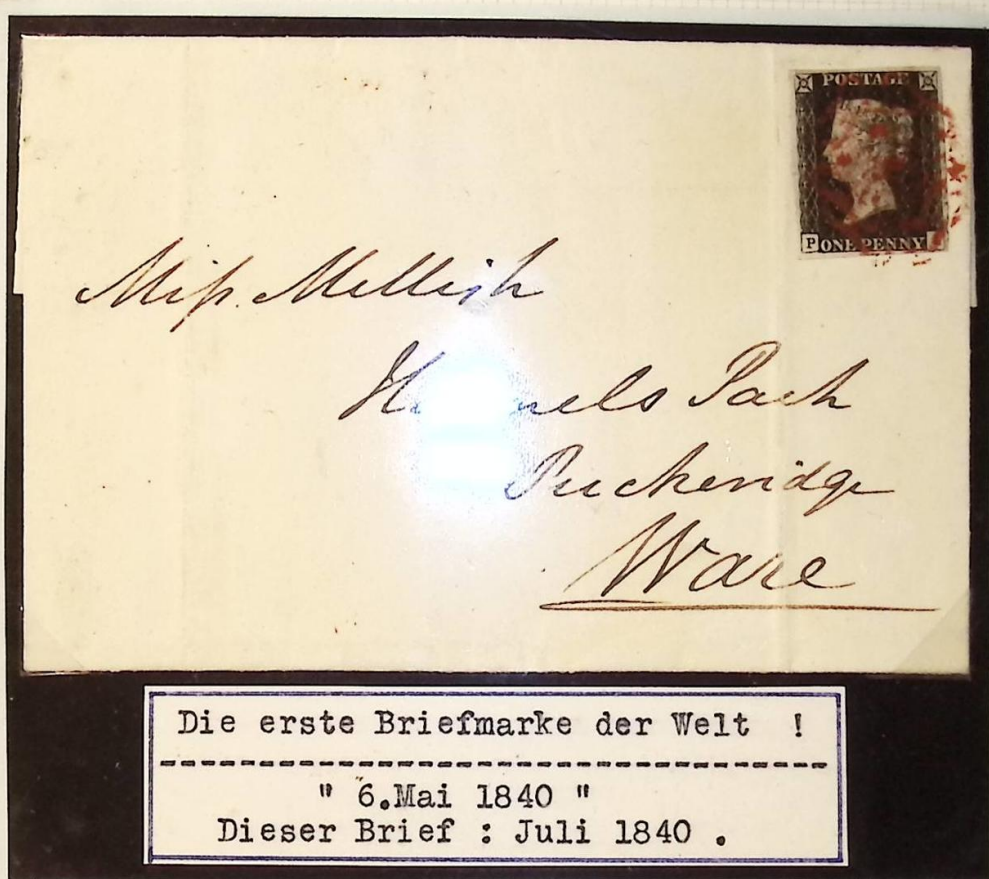 POSTAGE
P ONE PENNY
Miss Mellish
Park
Puckeridge
Ware
Die erste Briefmarke der Welt !
" 6.Mai 1840 "
Dieser Brief : Juli 1840 .